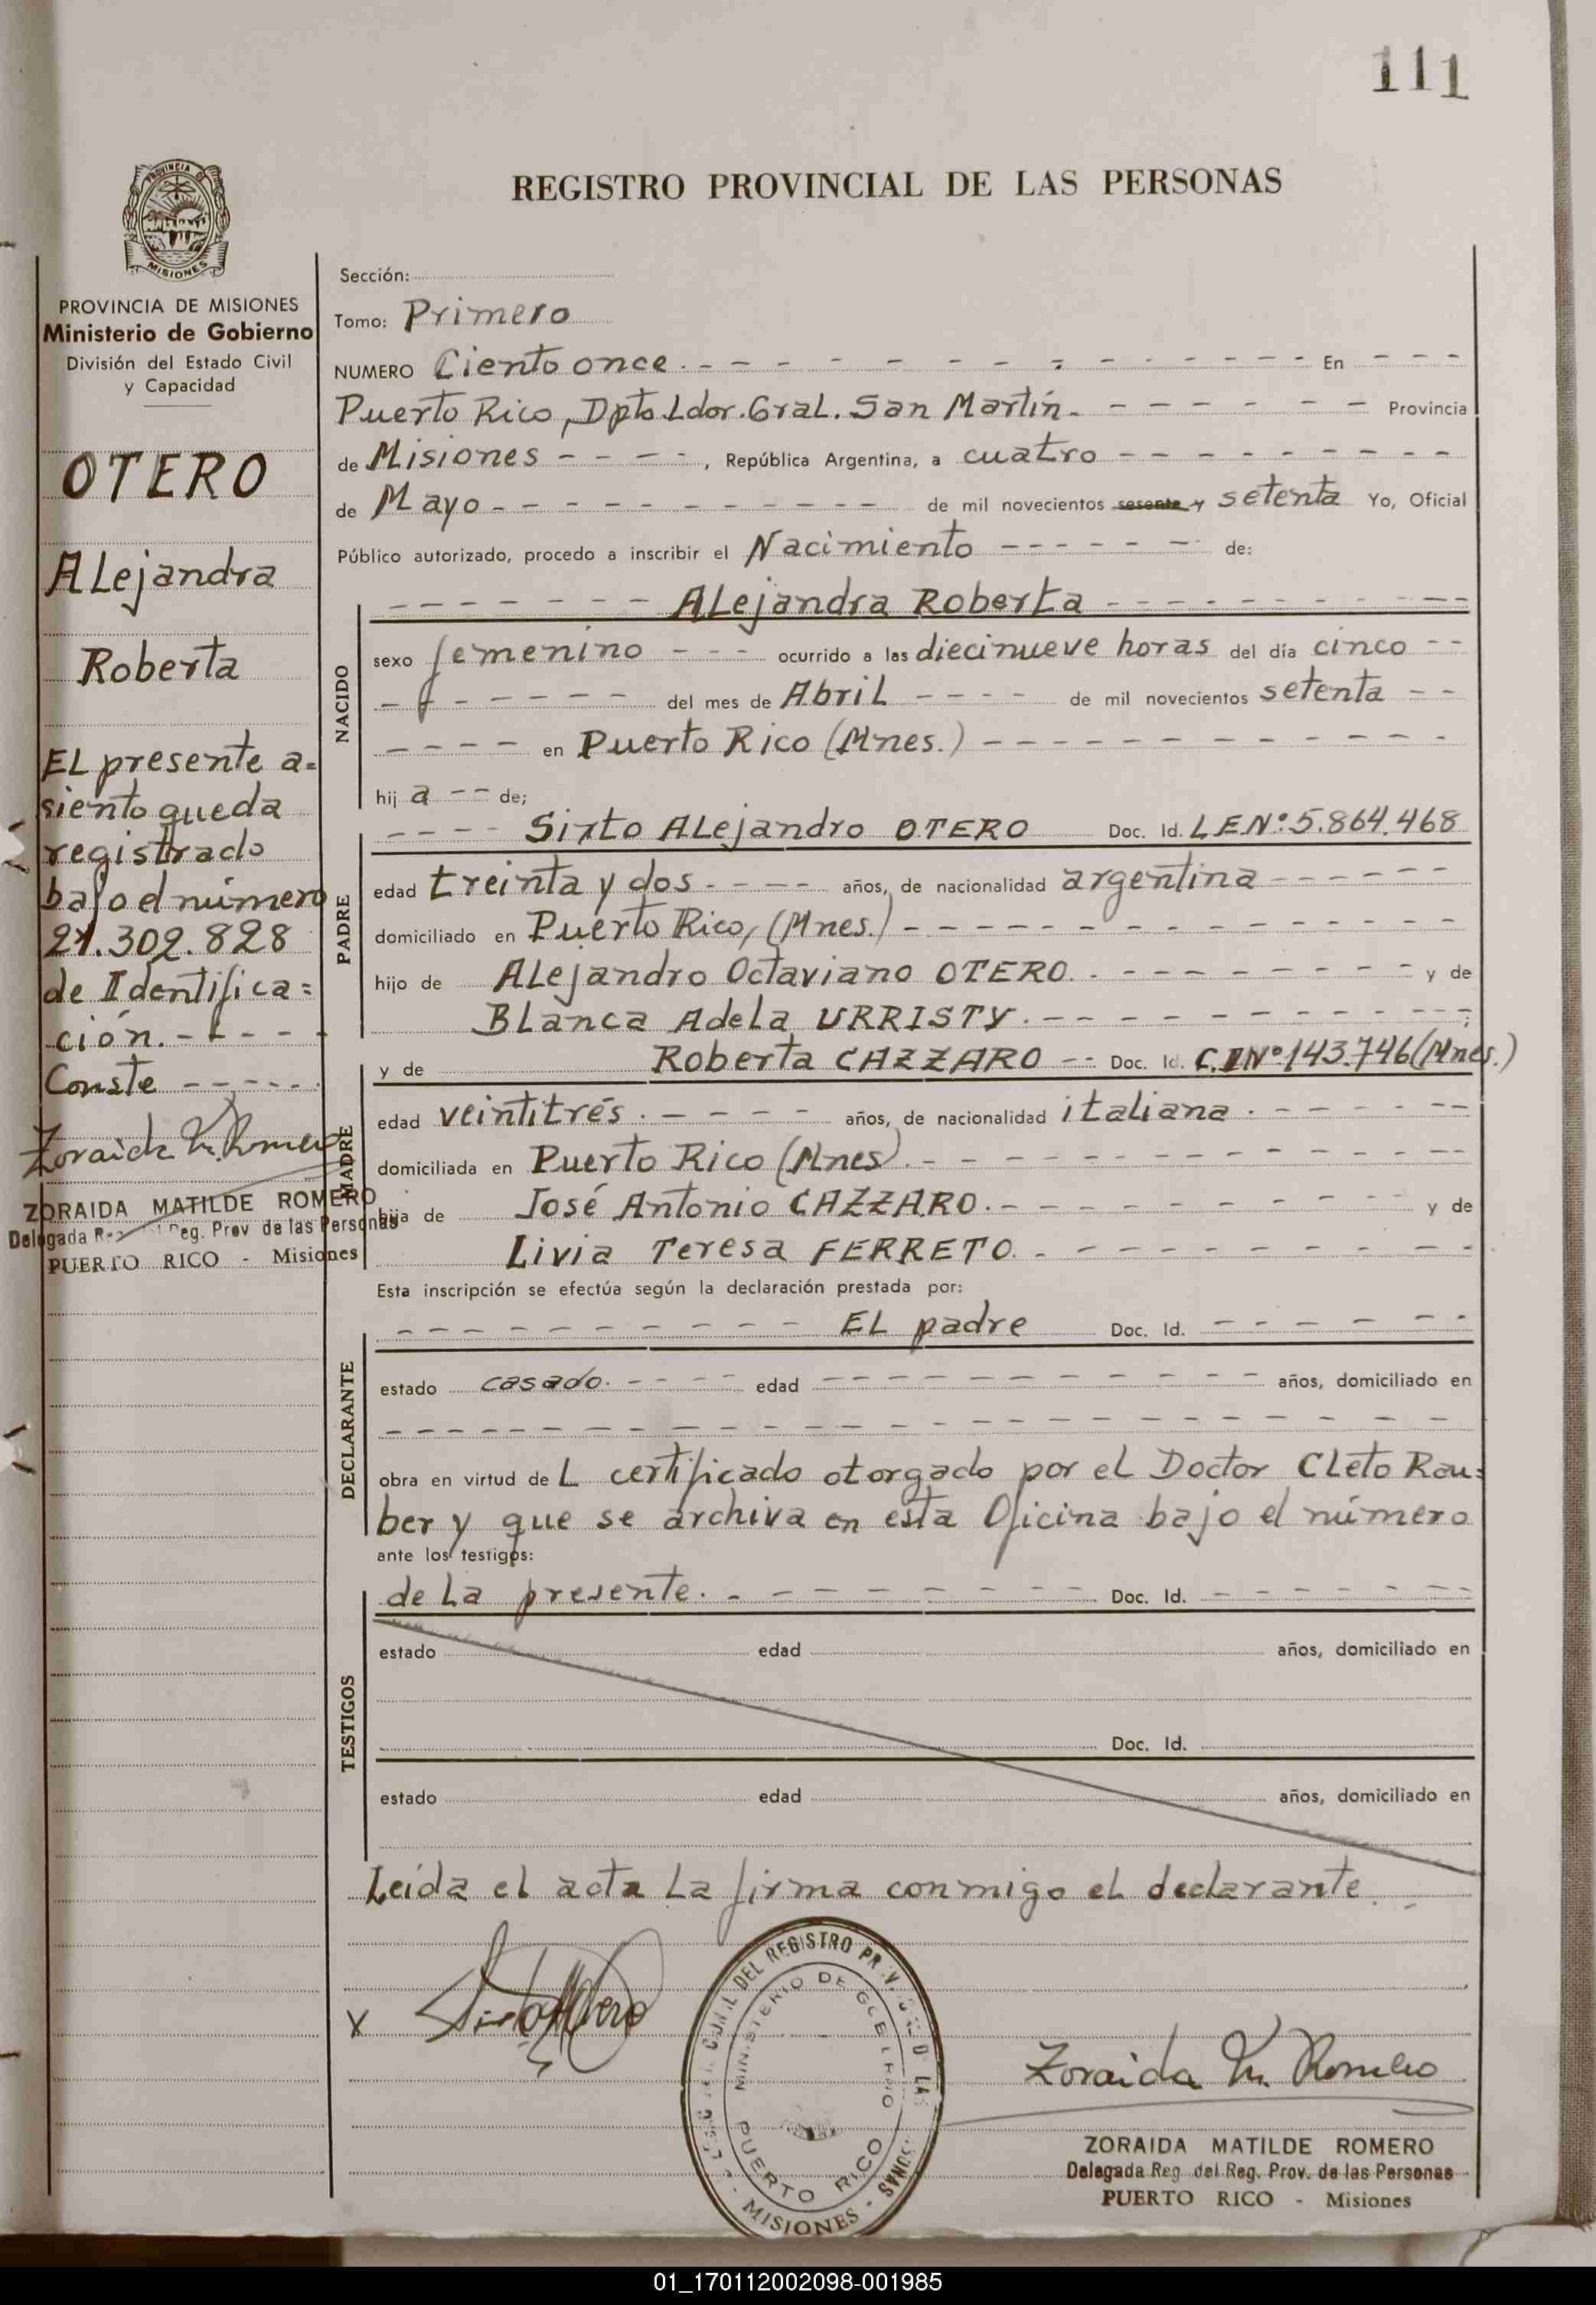 111
REGISTRO PROVINCIAL DE LAS PERSONAS
PROVINCIA DE MISIONES
PROVINCIA DE MISIONES
Ministerio de Gobierno
División del Estado Civil
y Capacidad
OTERO
ALejandra
Roberta
EL presente a=
siento queda
registrado
bajo el número
21.302.828
de Identifica=
ción.- - - -
Conste - - - - -
Zoraida M. Romero
ZORAIDA MATILDE ROMERO
Delegada Reg. Prov de las Personas
PUERTO RICO - Misiones
Sección:
Tomo: Primero
NUMERO Ciento once. - - - - - - - - - - - En - - -
Puerto Rico, Dpto Ldor. Gral. San Martín. - - - - - - Provincia
de Misiones - - - -, República Argentina, a cuatro - - - - - - - -
de Mayo - - - - - - - - - - de mil novecientos sesenta y setenta Yo, Oficial
Público autorizado, procedo a inscribir el Nacimiento - - - - - - de:
NACIDO
- - - - - - - ALejandra Roberta - - - - - - - - -
sexo femenino - - - ocurrido a las diecinueve horas del día cinco - -
- - - - - - del mes de Abril - - - - de mil novecientos setenta - -
- - - - en Puerto Rico (Mnes.) - - - - - - - - - - -
hij a - - de;
PADRE
- - - - Sixto ALejandro OTERO Doc. Id. L.E.Nº 5.864.468
edad treinta y dos - - - - años, de nacionalidad argentina - - - - - -
domiciliado en Puerto Rico, (Mnes.) - - - - - - - - - - - -
hijo de ALejandro Octaviano OTERO. - - - - - - - - y de
BLanca Adela URRISTY. - - - - - - - - - - ;
MADRE
y de Roberta CAZZARO - - Doc. Id. C.I Nº 143.746 (Mnes.)
edad veintitrés. - - - - años, de nacionalidad italiana. - - - - - -
domiciliada en Puerto Rico (Mnes). - - - - - - - - - - - -
hija de José Antonio CAZZARO. - - - - - - - - - y de
Livia Teresa FERRETO. - - - - - - - - - - -
Esta inscripción se efectúa según la declaración prestada por:
DECLARANTE
- - - - - - - - - - EL padre Doc. Id. - - - - - -
estado casado. - - - - edad - - - - - - - - - - años, domiciliado en
- - - - - - - - - - - - - - - - - - - - - -
obra en virtud de L certificado otorgado por el Doctor CLeto Rau=
ber y que se archiva en esta Oficina bajo el número
ante los testigos:
TESTIGOS
de La presente. - - - - - - - - - Doc. Id. - - - - - -
estado edad años, domiciliado en
Doc. Id.
estado edad años, domiciliado en
Leída el acta La firma conmigo el declarante.
X
DEL REGISTRO
MINISTERIO DE
PUERTO RICO
- MISIONES -
Zoraida M. Romero
ZORAIDA MATILDE ROMERO
Delegada Reg. del Reg. Prov. de las Personas
PUERTO RICO - Misiones
01_170112002098-001985